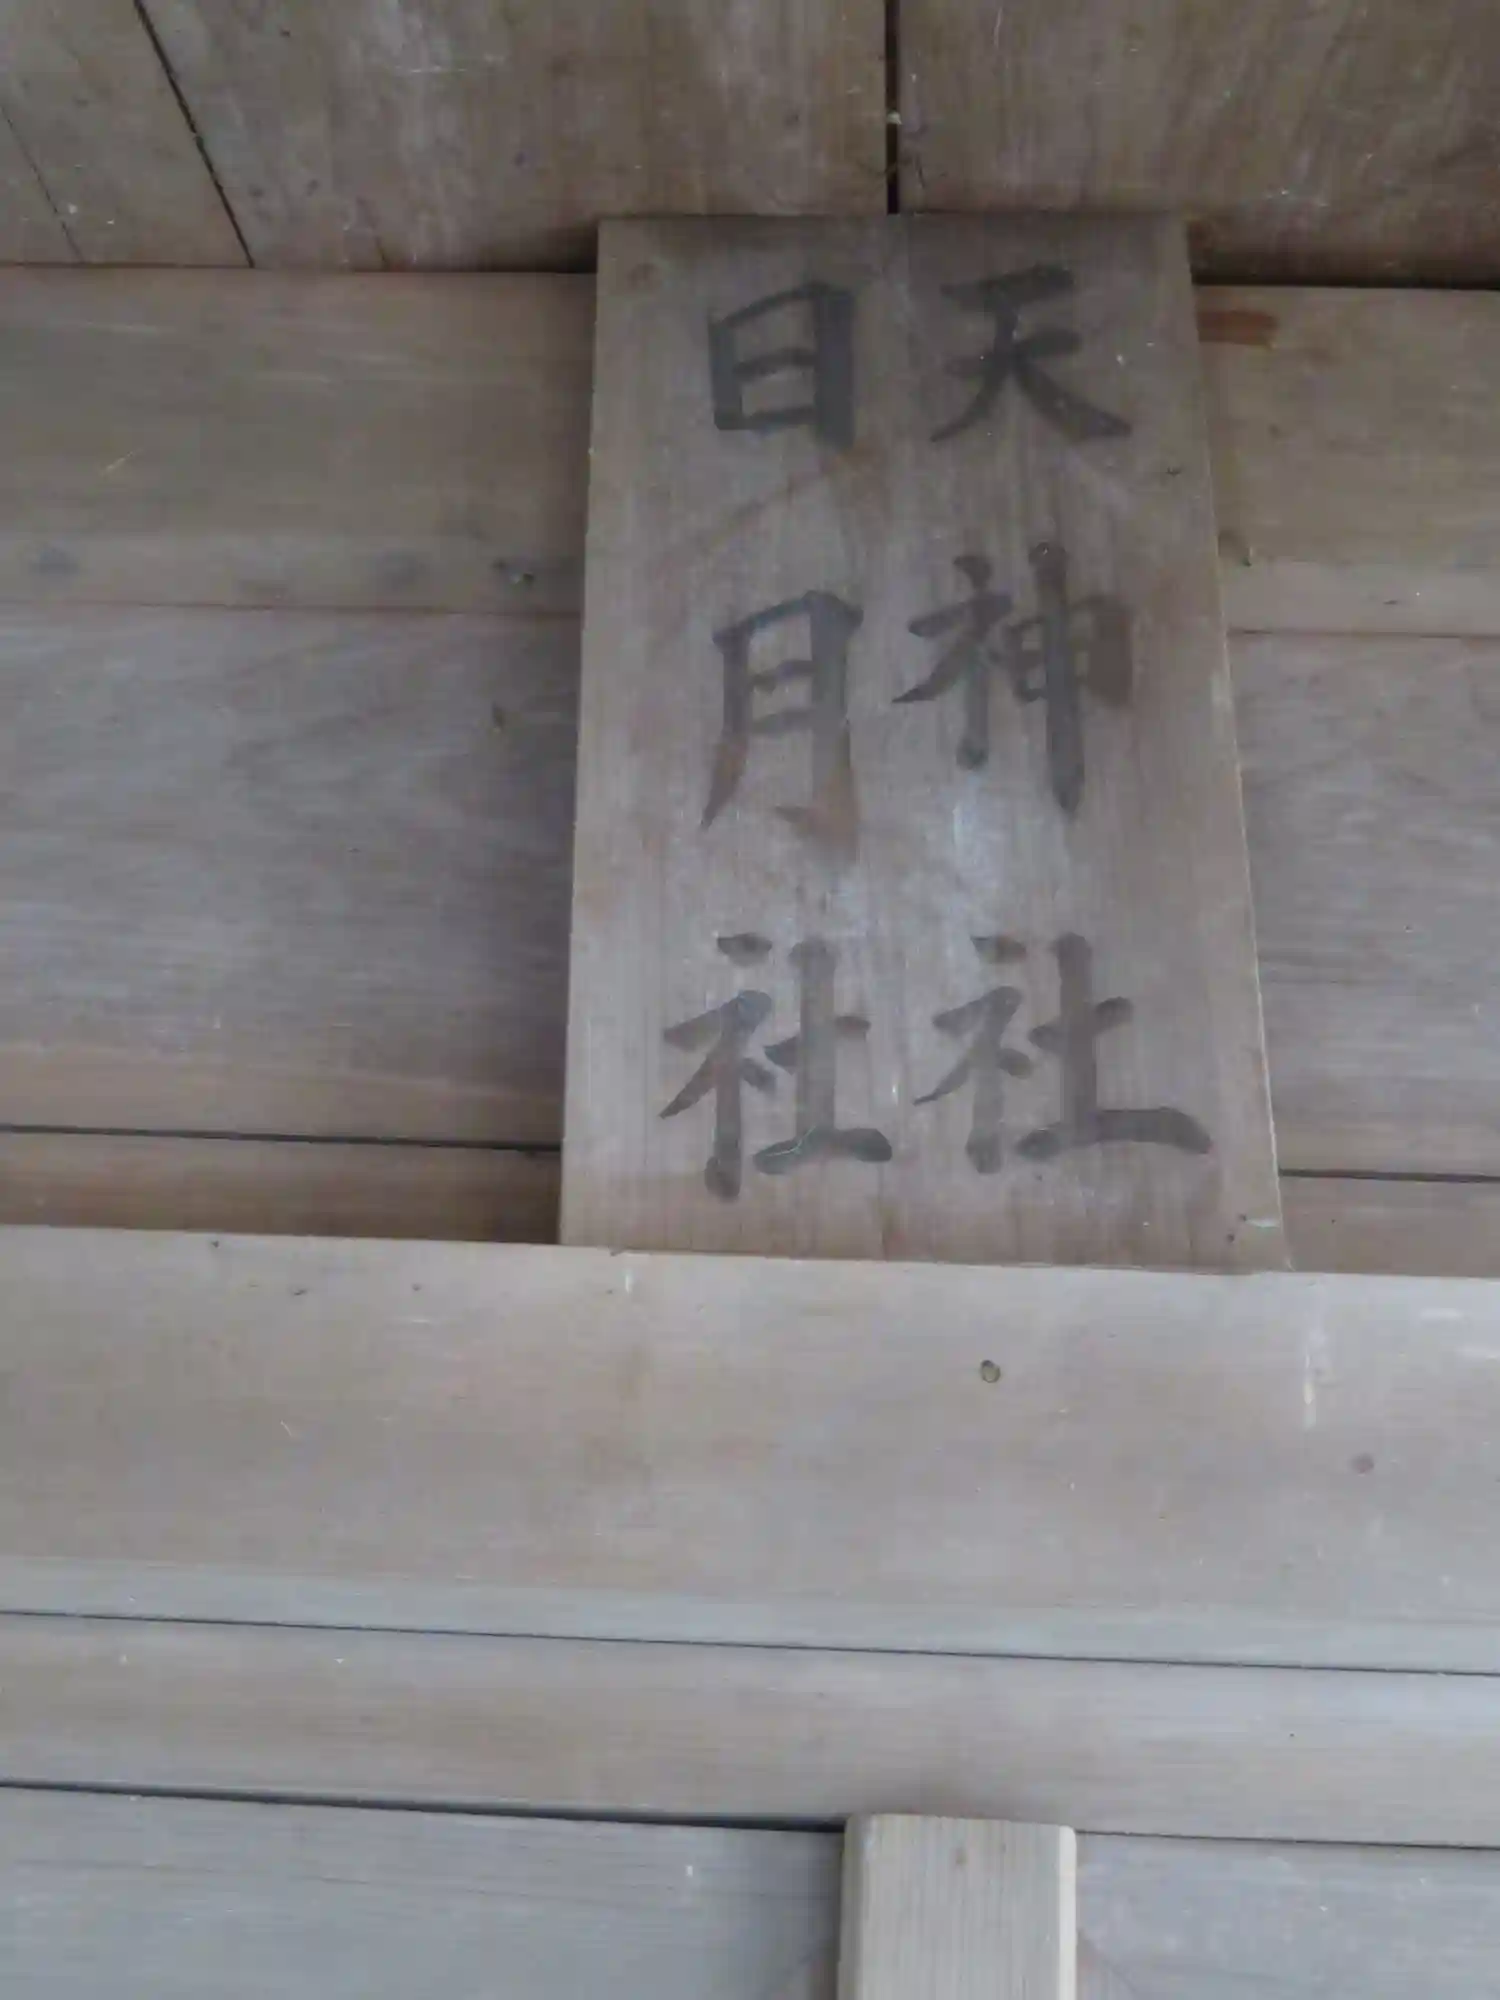 天神社
日月社